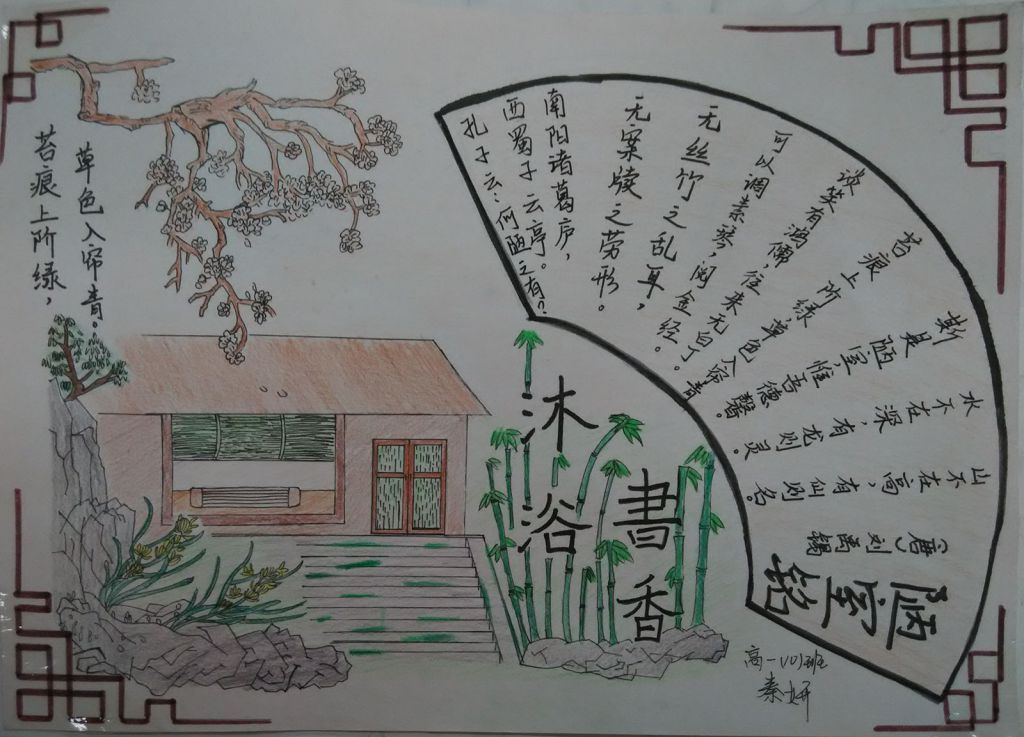 陋室铭
(唐)刘禹锡
山不在高，有仙则名。
水不在深，有龙则灵。
斯是陋室惟吾德馨。
苔痕上阶绿 草色入帘青
谈笑有鸿儒，往来无白丁
可以调素琴，阅金经。
无丝竹之乱耳，
无案牍之劳形。
南阳诸葛庐，
西蜀子云亭。
孔子云：何陋之有？
苔痕上阶绿，
草色入帘青。
沐浴
書香
秦妍